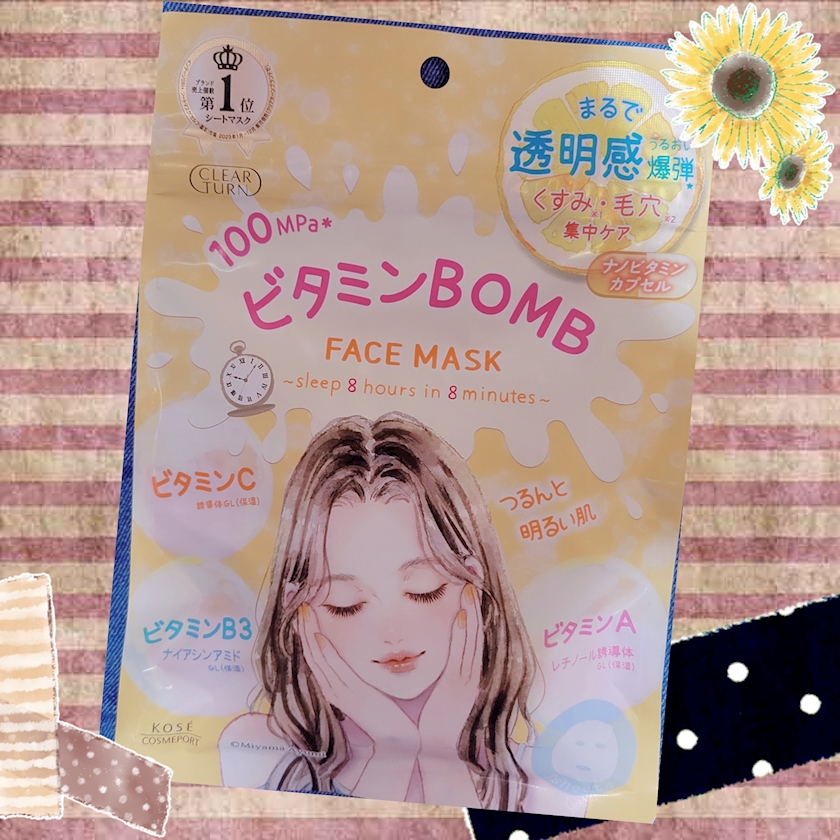 ブランド
売上個数
第1位
シートマスク
CLEAR
TURN
まるで
透明感
うるおい
爆弾
くすみ・毛穴
※1
※2
集中ケア
ナノビタミン
カプセル
100MPa*
ビタミンBOMB
FACE MASK
~sleep 8 hours in 8 minutes~
ビタミンC
誘導体GL(保湿)
つるんと
明るい肌
ビタミンB3
ナイアシンアミド
GL(保湿)
ビタミンA
レチノール誘導体
GL(保湿)
KOSÉ
COSMEPORT
©Miyama